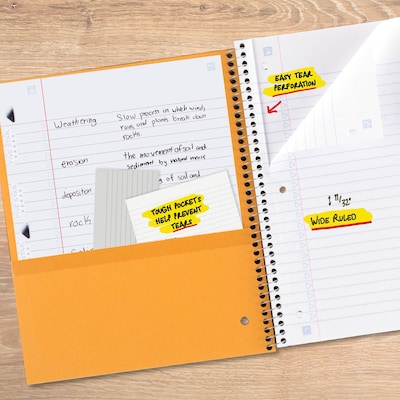 Weathering
Slow process in which wind,
rain, and plants break down
rocks.
erosion
the movement of soil and
sediment by natural means
deposition
of soil and
rock
TOUGH POCKETS
HELP PREVENT
TEARS
EASY TEAR
PERFORATION
11/32"
WIDE RULED